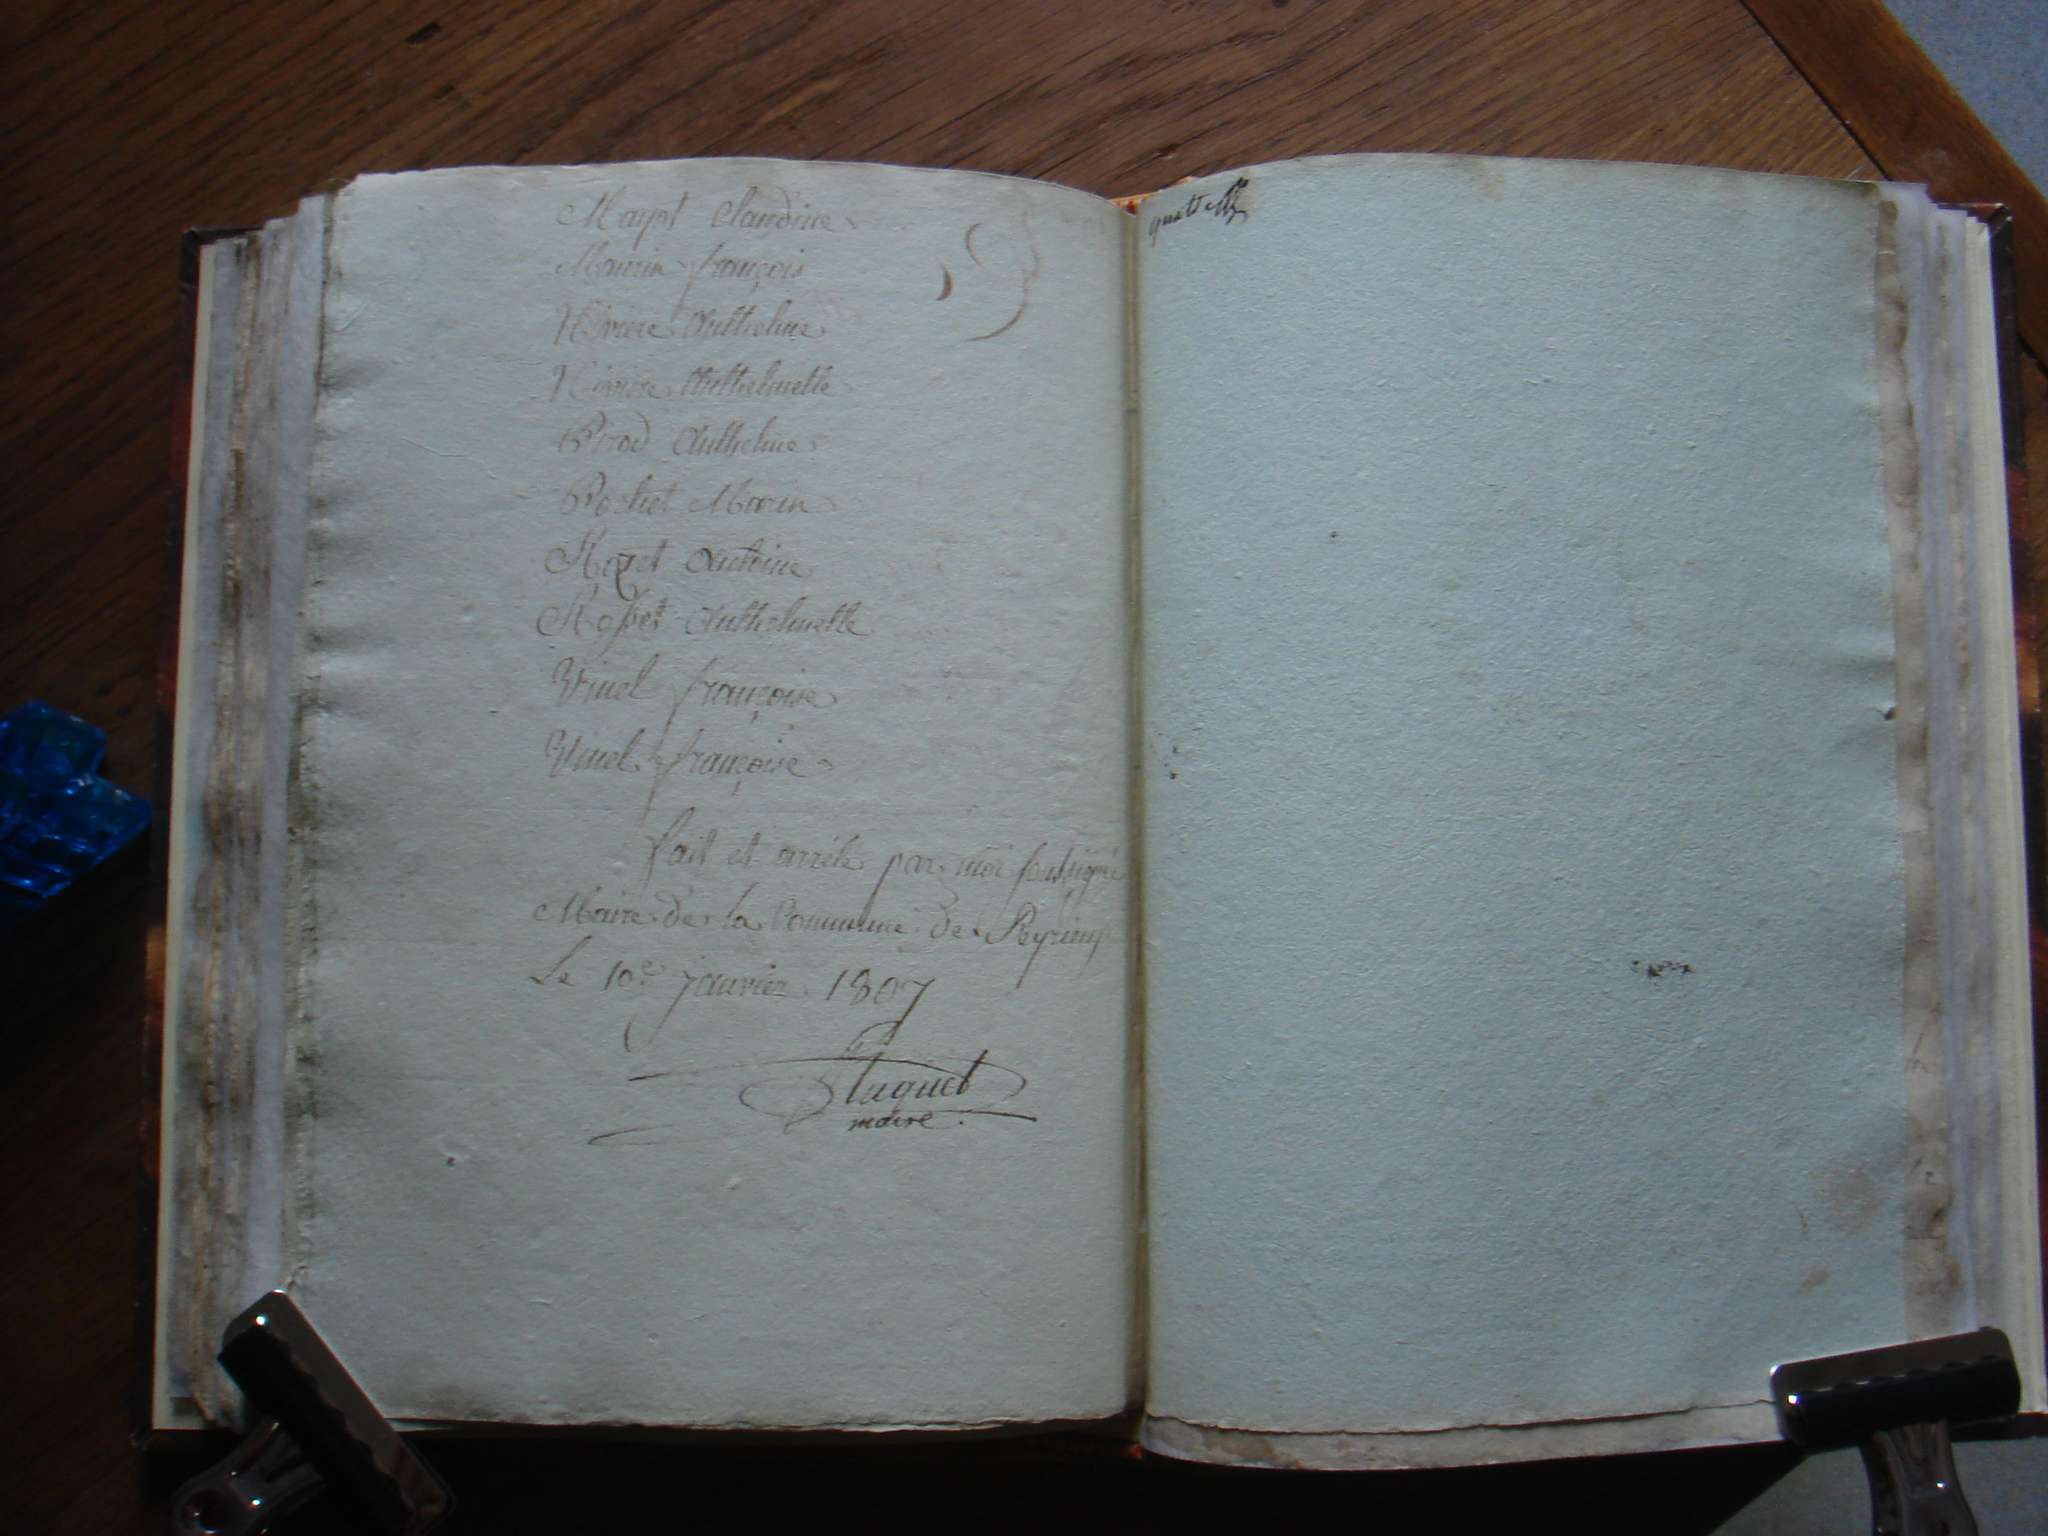 Claudine
Maurin françois
Anthelme
Anthelmette
Pirod Anthelme
Pochet Marin
Rozet Antoine
Rosset Anthelmette
Vinel françoise
Vinel françoise
fait et arrêté par moi soussigné
Maire de la Commune de Peyrieux
Le 10e janvier 1807
maire